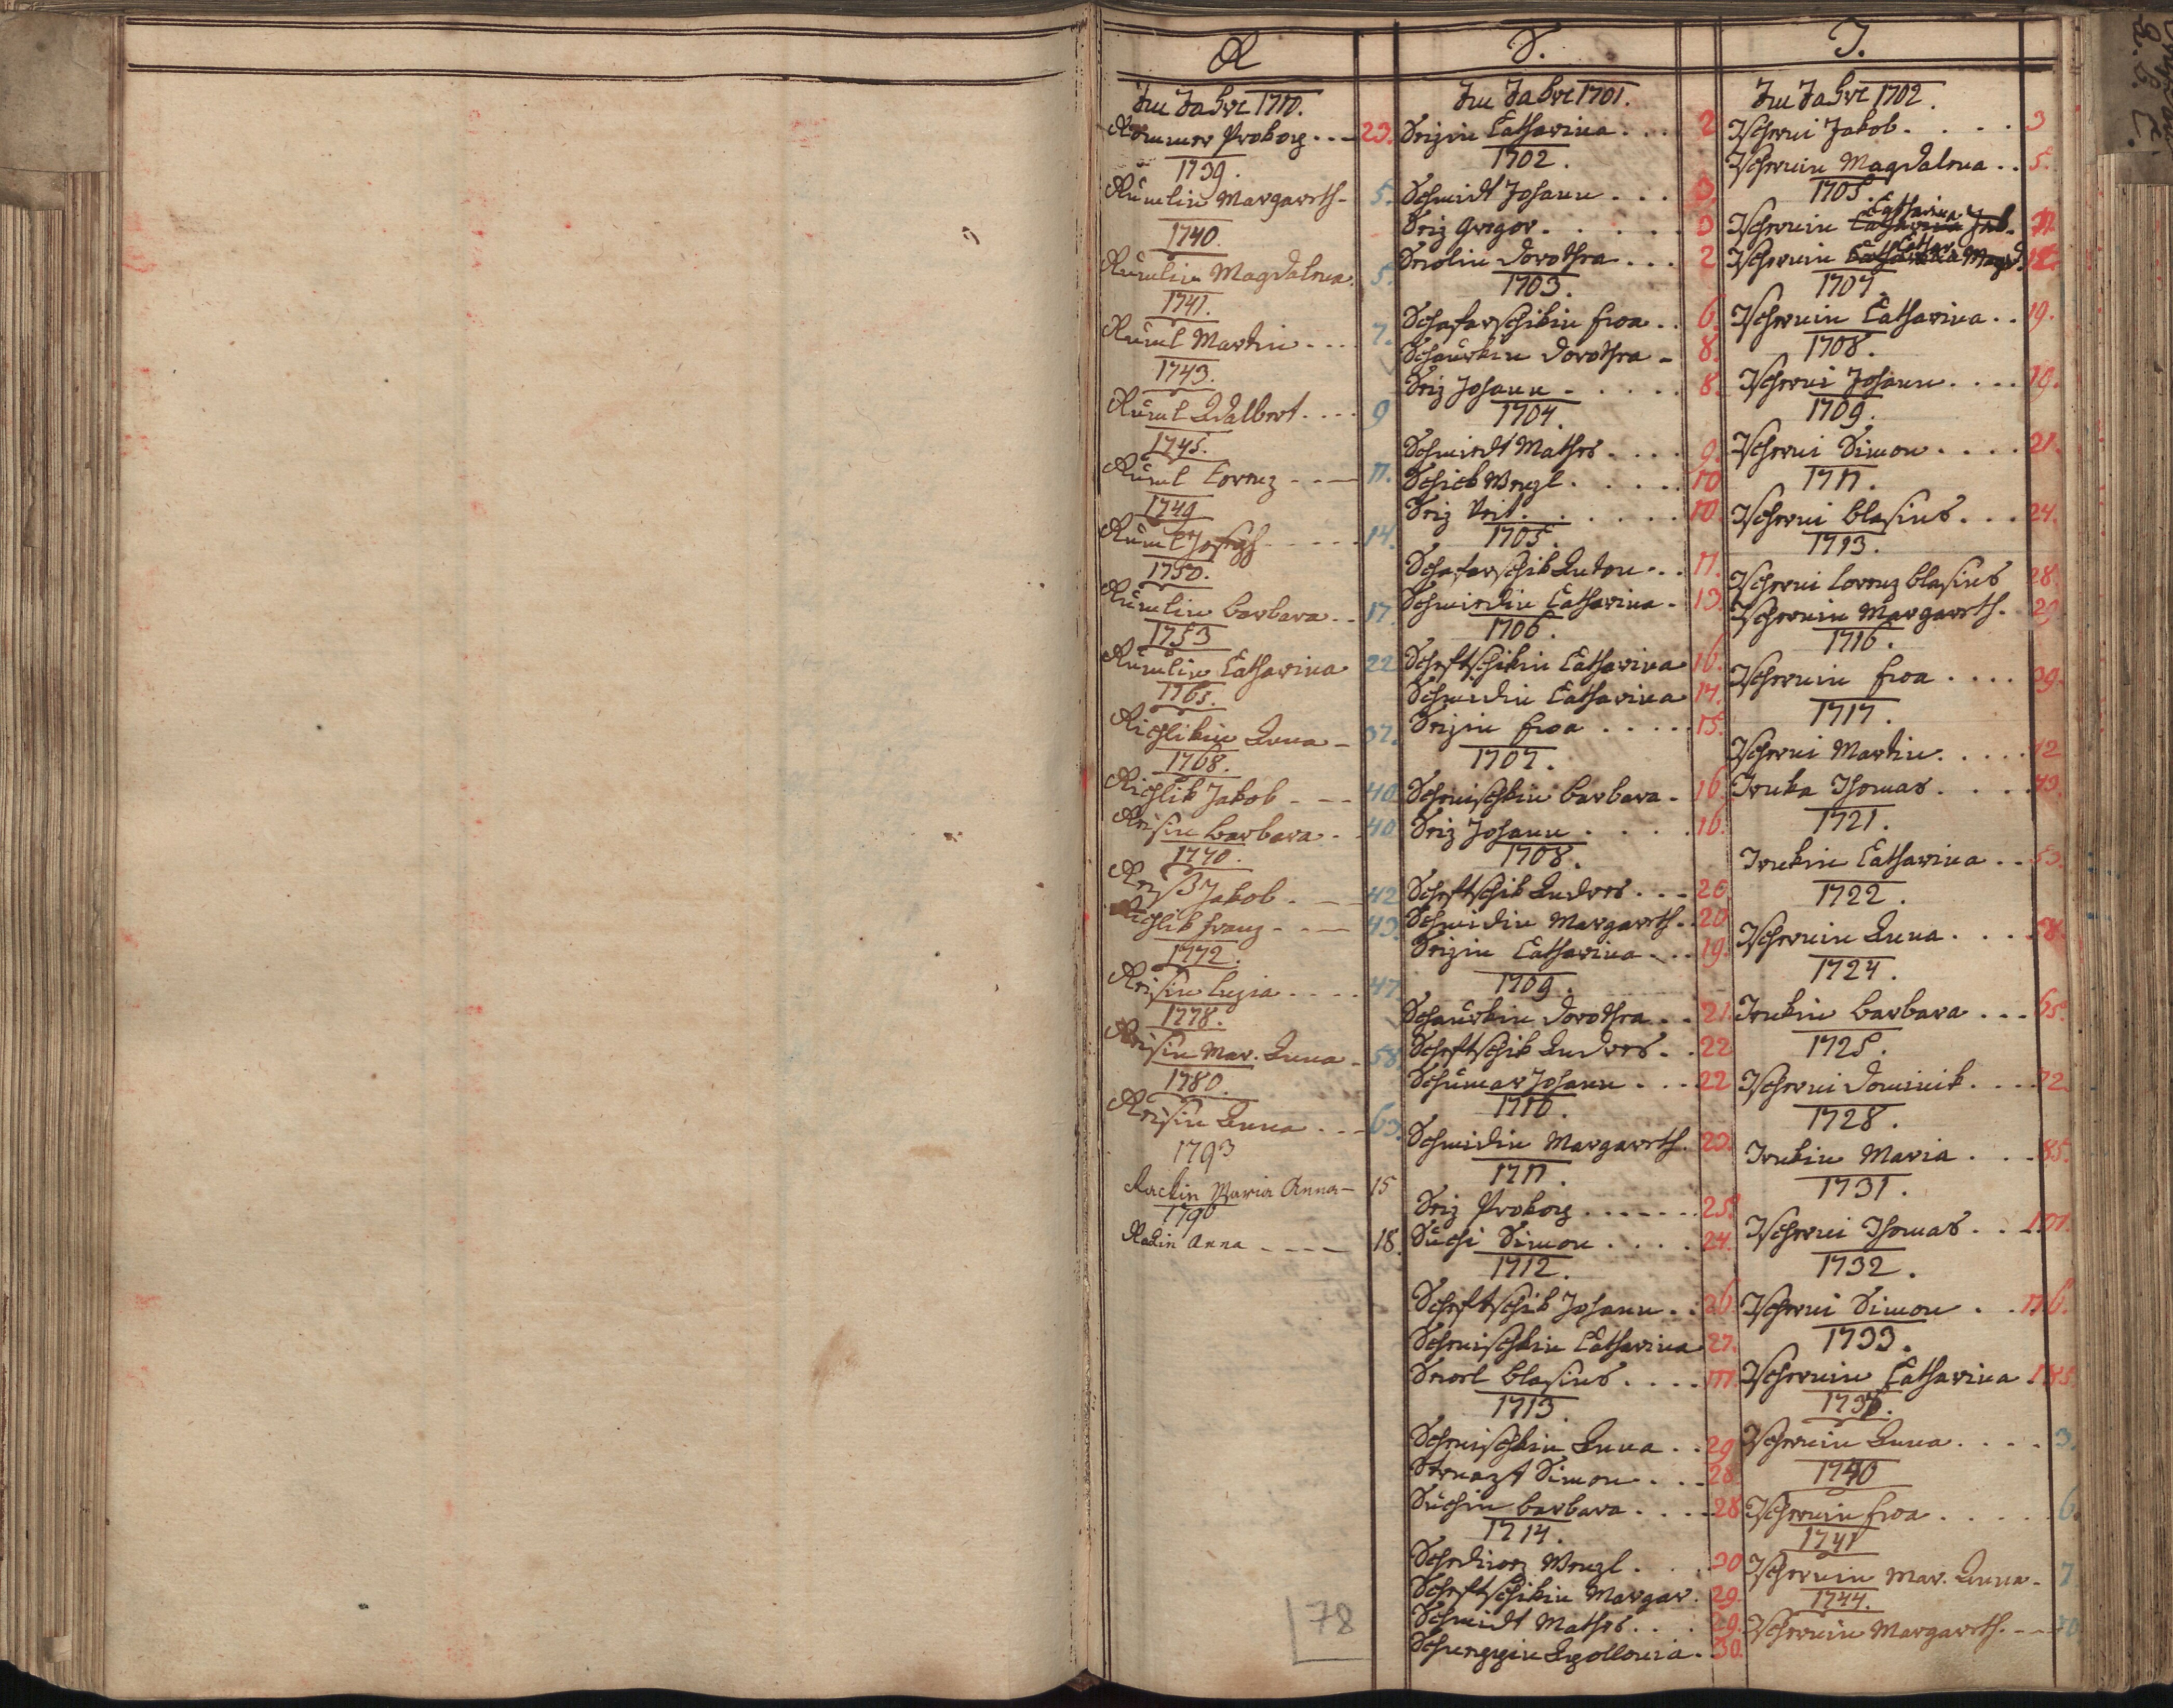 R
Im Jahre 1710.
Rommer Prokop . . . 23.
1739.
Rumlin Margareth - 5.
1740.
Rumlin Magdalena. 5.
1741.
Ruml Martin . . . . 7.
1743.
Ruml Adalbert . . . . 9
1745.
Ruml Lorenz - - - 11.
1749
Ruml Joseph - - - - - 14.
1750.
Rumlin Barbara . . 17.
1753
Rumlin Catharina 22
1765.
Richlikin Anna - 37.
1768.
Richlik Jakob - - - 40
Reisin Barbara - 40
1770.
Reiß Jakob . - - 42
Richlik Franz - - - 43.
1772.
Reisin Luzia . . . . 47.
1778.
Reisin Mar. Anna - 58
1780.
Reisin Anna . . . 63.
1793
Rackin Maria Anna - 15
1796
Radin Anna - - - - 18.
78
S.
Im Jahre 1701.
Seizin Catharina . . . 2
1702.
Schmidt Johann . . . 3.
Seiz Gregor . . . . . 3
Dorothea . . . 2
1703.
Schafarschikin Eva . . 6.
Schaurkin Dorothea - 8.
Seiz Johann - . . . . 8.
1704.
Schmidt Mathes . . . . 9.
Schick Wenzl . . . . . 10
Seiz Veit . . . . . . . 10.
1705.
Schafarschik Anton . . . 11.
Schmidin Catharina . 13.
1706.
Scheftschikin Catharina 16.
Schmidin Catharina 14.
Seizin Eva . . . . . 15.
1707.
Schmischkin Barbara - 16
Seiz Johann . . . . . 16.
1708.
Scheftschik Andres . . . 20
Schmidin Margareth . . 20
Seizin Catharina . . . 19.
1709.
Schaurkin Dorothea . . 21.
Scheftschik Andres . . 22
Schumar Johann . . . 22
1710.
Schmidin Margareth. 23.
1711.
Seiz Prokop . . . . . . . 25.
Suchi Simon . . . . . 24.
1712.
Scheftschik Johann . . 26
Schmischkin Catharina 27.
Blasius . . . .
1713.
Schmischkin Anna . . 29
Simon . . . 28.
Suchin Barbara . . . . 28
1714.
Wenzl . . . 30
Scheftschikin Margar. 29.
Schmidt Mathes . . . 29.
Apollonia . 30.
T.
Im Jahre 1702.
Tscherni Jakob . . . . . 3
Tschernin Magdalena . . 5.
1705.
Tschernin Catharina Jak. 11.
Tschernin Cathar. Magd. 12.
1707.
Tschernin Catharina . . 19.
1708.
Tscherni Johann . . . . 19.
1709.
Tscherni Simon . . . . 21.
1711.
Tscherni Blasius . . . 24.
1713.
Tscherni Lorenz Blasius 28.
Tschernin Margareth . 29
1716.
Tschernin Eva . . . . 39.
1717.
Tscherni Martin . . . . . 42
Trnka Thomas . . . . 43.
1721.
Trnkin Catharina . . 53.
1722.
Tschernin Anna . . . . 58.
1724.
Trnkin Barbara . . . 65.
1725.
Tscherni Dominik . . . . 72.
1728.
Trnkin Maria . . . 85.
1731.
Tscherni Thomas . . .
1732.
Tscherni Simon . . 176.
1733.
Tschernin Catharina . 185.
1736.
Tschernin Anna . . . . 3.
1740
Tschernin Eva . . . . . 6.
1741
Tschernin Mar. Anna - 7
1744.
Tschernin Margareth. - - 10